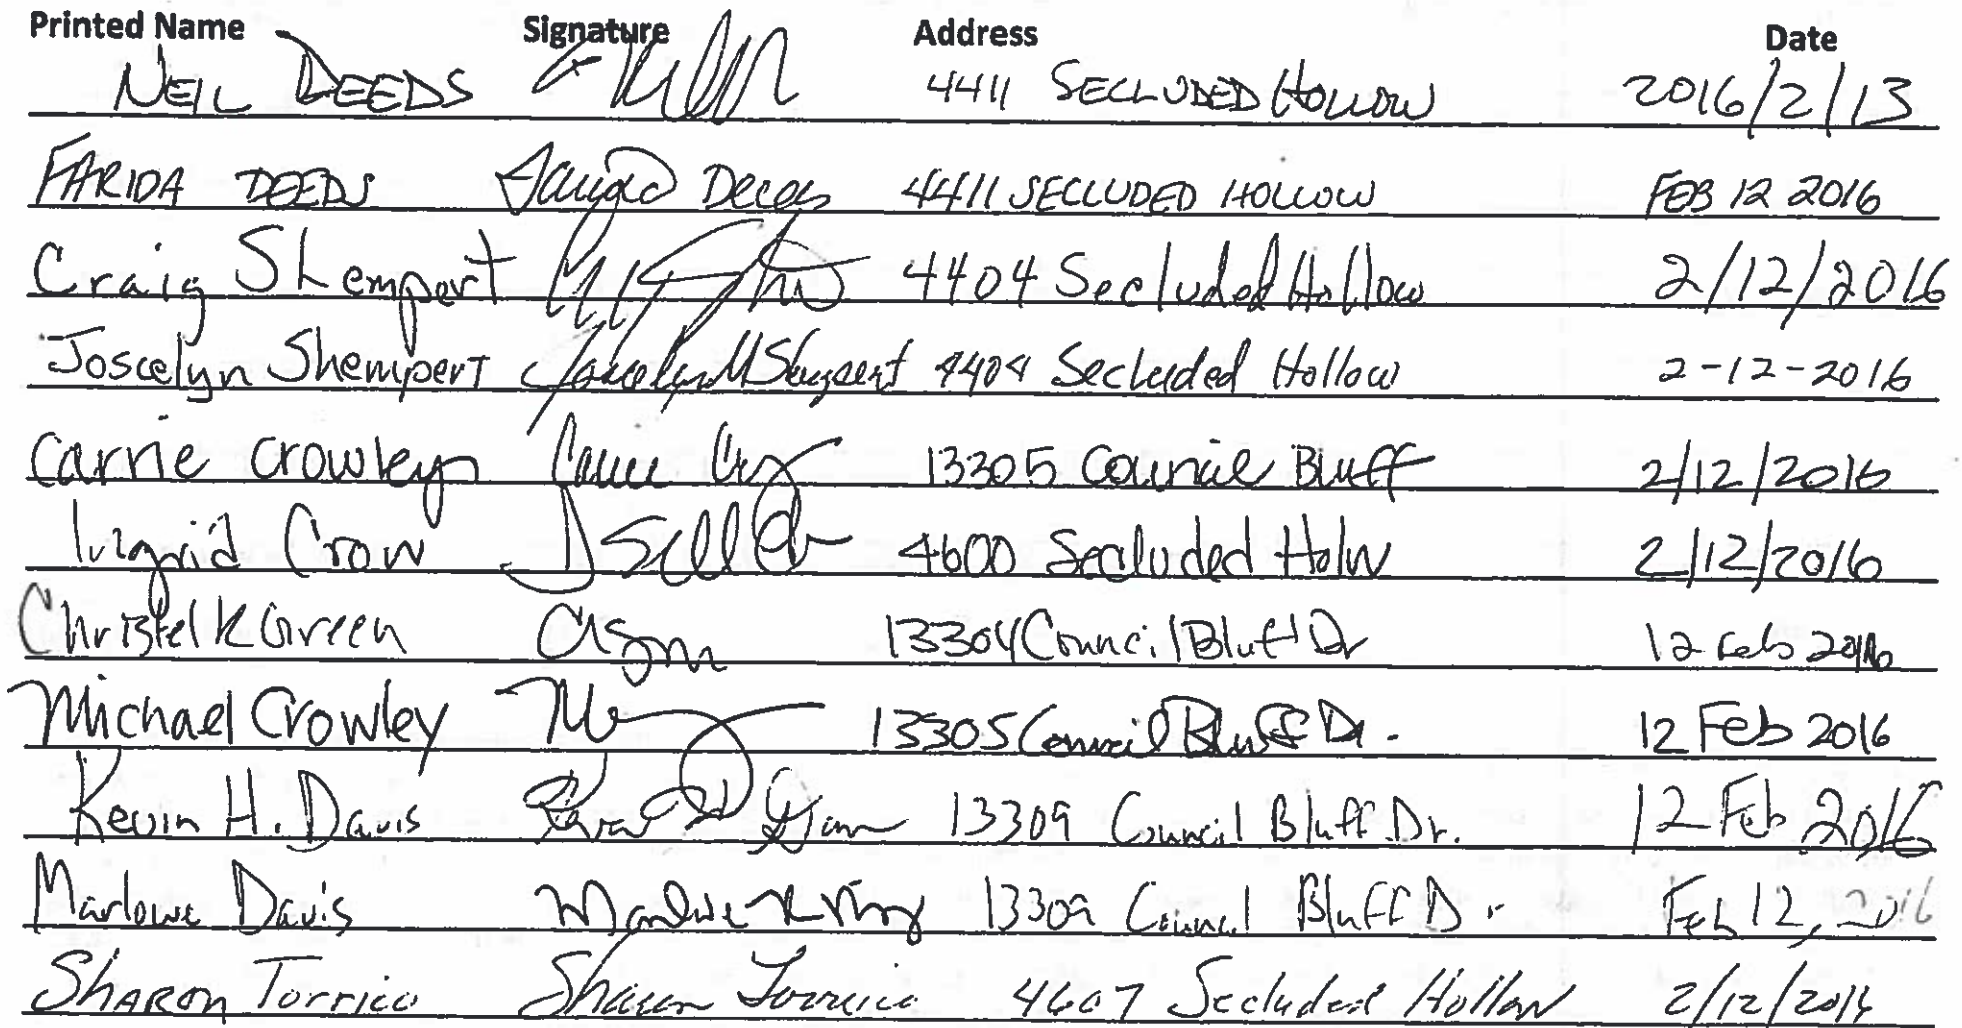 Printed Name Signature Address Date
NEIL DEEDS 4411 SECLUDED HOLLOW 2016/2/13
FARIDA DEEDS Farida Deeds 4411 SECLUDED HOLLOW FEB 12 2016
Craig Shempert 4404 Secluded Hollow 2/12/2016
Joscelyn Shempert Joscelyn M Shempert 4404 Secluded Hollow 2-12-2016
Carrie Crowley Carrie 13305 Council Bluff 2/12/2016
Ingrid Crow 4600 Secluded Holw 2/12/2016
Christel K Green 13304 Council Bluff Dr 12 Feb 2016
Michael Crowley 13305 Council Bluff Dr. 12 Feb 2016
Kevin H. Davis 13309 Council Bluff Dr. 12 Feb 2016
Marlowe Davis Marlowe 13309 Council Bluff Dr. Feb 12, 2016
SHARON Torrico Sharon Torrico 4607 Secluded Hollow 2/12/2016